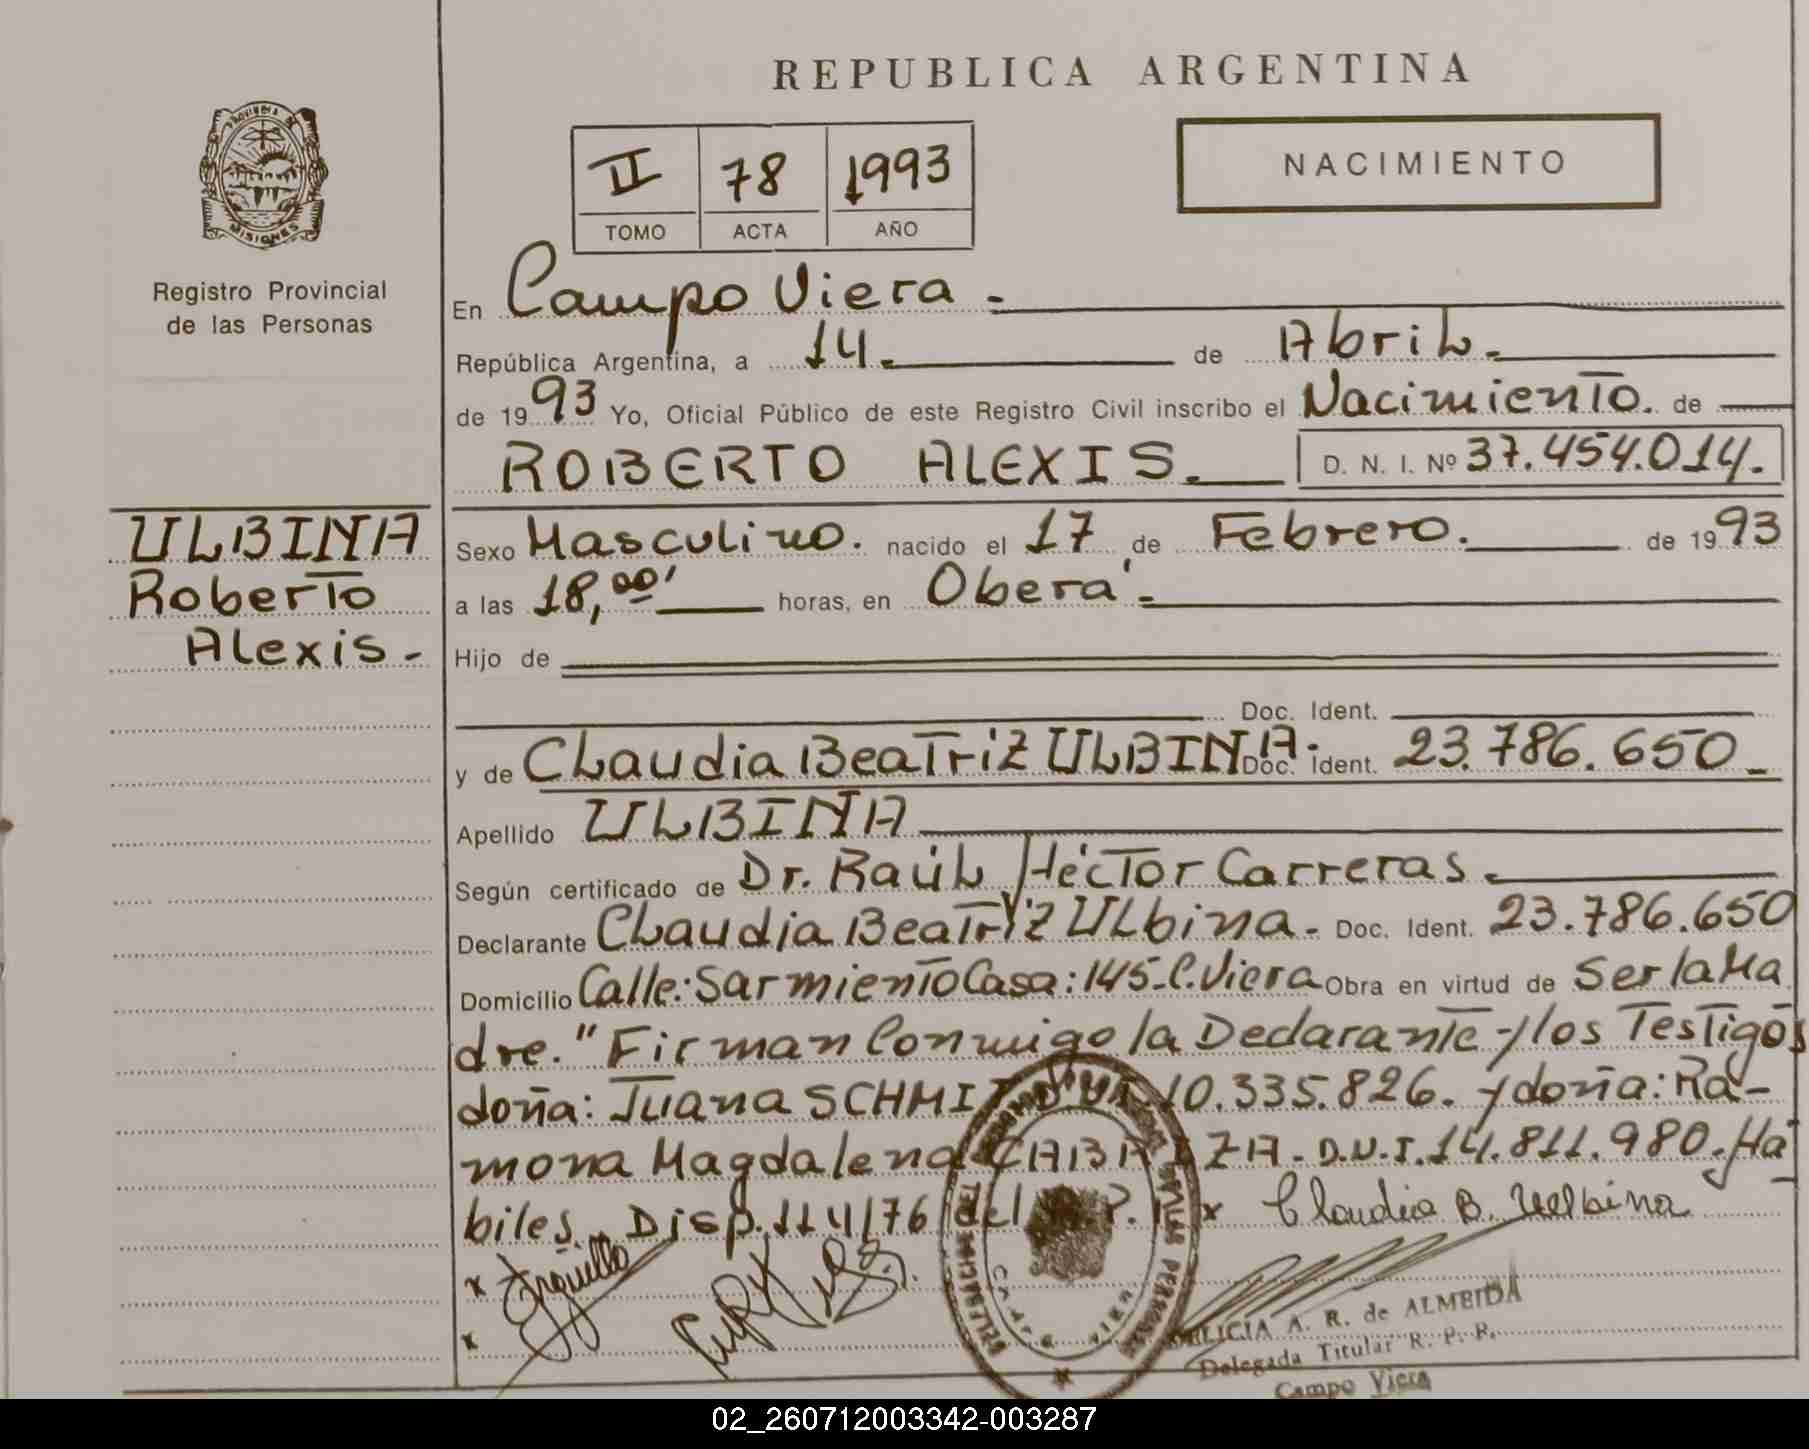 REPUBLICA ARGENTINA
PROVINCIA DE
MISIONES
Registro Provincial
de las Personas
II 78 1993
TOMO ACTA AÑO
NACIMIENTO
En Campo Viera.-
República Argentina, a 14.- de Abril.-
de 1993 Yo, Oficial Público de este Registro Civil inscribo el Nacimiento. de
ROBERTO ALEXIS.- D. N. I. Nº 37.454.014.
ULBINA
Roberto
Alexis-
Sexo Masculino. nacido el 17 de Febrero. de 1993
a las 18,00' horas, en Oberá.-
Hijo de
Doc. Ident.
y de Claudia Beatriz ULBINA. Doc. Ident. 23.786.650-
Apellido ULBINA
Según certificado de Dr. Raúl Héctor Carreras.-
Declarante Claudia Beatriz Ulbina.- Doc. Ident. 23.786.650
Domicilio Calle: Sarmiento Casa: 145-C. Viera Obra en virtud de Ser la Ma
dre." Firman Conmigo la Declarante y los Testigos
doña: Juana SCHMI 10.335.826. y doña: Ra-
mona Magdalena D.N.I. 14.811.980. Há
biles. Disp. 114/76 del x Claudia B. Uelbina
x
x
A. R. de ALMEIDA
Delegada Titular R. P. P.
Campo Viera
02_260712003342-003287